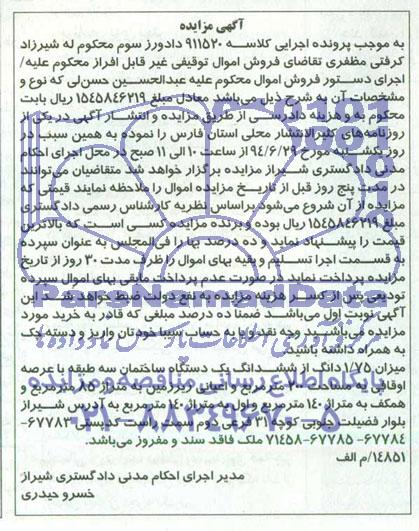 آگهی مزایده
به موجب پرونده اجرایی کلاسه ۹۱۱۵۲۰ دادورز سوم محکوم له شیرزاد
کرفتی مظفری تقاضای فروش اموال توقیفی غیر قابل افراز محکوم علیه/
اجرای دستور فروش اموال محکوم علیه عبدالحسین حسن‌لی که نوع و
مشخصات آن به شرح ذیل می‌باشد معادل مبلغ ۱۵۴۵۸۴۶۲۱۹ ریال بابت
محکوم به و هزینه دادرسی از طریق مزایده و انتشار آگهی در یکی از
روزنامه‌های کثیرالانتشار محلی استان فارس را نموده به همین سبب در
روز یکشنبه مورخ ۹۴/۶/۲۹ از ساعت ۱۰ الی ۱۱ صبح در محل اجرای احکام
مدنی دادگستری شیراز مزایده برگزار خواهد شد متقاضیان می‌توانند
در مدت پنج روز قبل از تاریخ مزایده اموال را ملاحظه نمایند قیمتی که
مزایده از آن شروع می‌شود براساس نظریه کارشناس رسمی دادگستری
مبلغ ۱۵۴۵۸۴۶۲۱۹ ریال بوده و برنده مزایده کسی است که بالاترین
قیمت را پیشنهاد نماید و ده درصد بها را فی‌المجلس به عنوان سپرده
به قسمت اجرا تسلیم و بقیه بهای اموال را ظرف مدت ۳۰ روز از تاریخ
مزایده پرداخت نماید در صورت عدم پرداخت مابقی بهای اموال سپرده
تودیعی پس از کسر هزینه مزایده به نفع دولت ضبط خواهد شد این
آگهی نوبت اول می‌باشد ضمنا ده درصد مبلغی که قادر به خرید مورد
مزایده می‌باشید وجه نقد و یا به حساب سیبا خودتان واریز و دسته چک
به همراه داشته باشید.
میزان ۱/۷۵ دانگ از ششدانگ یک دستگاه ساختمان سه طبقه با عرصه
اوقافی به مساحت ۲۰۰ مترمربع و اعیانی زیرزمین به متراژ ۸۵ مترمربع و
همکف به متراژ ۱۴۰ مترمربع و اول به متراژ ۱۴۰ مترمربع به آدرس شیراز
بلوار فضیلت جنوبی کوچه ۳۱ فرعی دوم سمت راست کدپستی ۶۷۷۸۳-
۶۷۷۸۴- ۶۷۷۸۵- ۷۱۴۵۸ ملک فاقد سند و مفروز می‌باشد.
۱۴۸۵۱/م الف
مدیر اجرای احکام مدنی دادگستری شیراز
خسرو حیدری
ParsNamadData
پایگاه اطلاع رسانی مناقصه و مزایده
۰۲۱-۸۸۳۴۹۶۷۰-۵